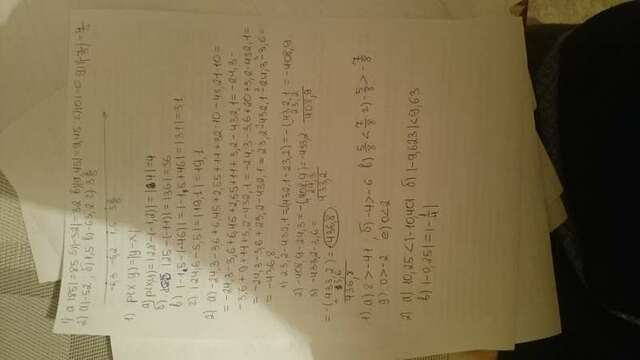 1) а |85|=85 б) |-32|=32 в) |9,45|=9,45 г) |0|=0 д) |-7/8|=7/8
2) а) -52, б) 1,5 в) -63,2 г)
1) p(x y)=|y-x|
а) p(x,y)=|2,8-(-1,2)|=|4|=4
б) |25-(-11)|=|36|=36
в) |-1,5-(-46)|=|-1,5+46|=|31|=31
г) |24,6-5,5|=|19,1|=19,1
2) а) -24,3-3,6+6,45+2,55+11+3,2·10-43,21·10=
=-24,3-3,6+6,45+2,55+11+3,2-432,1=-24,3-
-3,6+9+11+3,2-432,1=-24,3-3,6+20+3,2-432,1=
=-24,3-3,6+23,2-432,1=23,2-432,1-24,3-3,6=
=-436,8
1) 23,2-432,1=(432,1-23,2)=-408,9
2) -408,9-24,3=-(408,9)=-433,2
3) -433,2-3,6=
=-(433,2)=-436,8
3,6
436,8
1) а) 8>-41, б) -4>-6 в) 5/8<7/8 г) -5/8>-7/8
д) 0>-2 е) 0<2
2) а) 10,25<|-10,40| б) |-9,623|<9,63
в) |-0,25|=|-1/4|